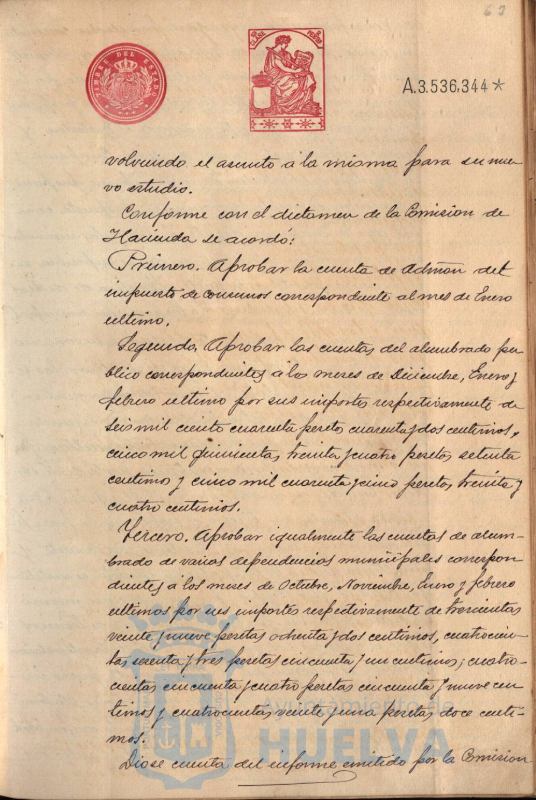 63
TIMBRE DEL ESTADO
A.3.536,344*
volviendo el asunto á la misma para su nue-
vo estudio.
Conforme con el dictamen de la Comision de
Hacienda se acordó:
Primero. Aprobar la cuenta de Admon del
impuesto de consumos correspondiente al mes de Enero
ultimo.
Segundo. Aprobar las cuentas del alumbrado pu-
blico correspondientes á los meses de Diciembre, Enero y
febrero ultimo por sus importes respectivamente de
seis mil ciento cuarenta pesetas cuarenta y dos centimos,
cinco mil quinientas treinta y cuatro pesetas setenta
centimos y cinco mil cuarenta y cinco pesetas treinta y
cuatro centimos.
Tercero. Aprobar igualmente las cuentas de alum-
brado de varias dependencias municipales correspon-
dientes á los meses de Octubre, Noviembre, Enero y febrero
ultimos por sus importes respectivamente de trescientas
veinte y nueve pesetas ochenta y dos centimos, cuatrocien-
tas sesenta y tres pesetas cincuenta y un centimos; cuatro-
cientas cincuenta y cuatro pesetas cincuenta y nueve cen-
timos y cuatrocientas veinte y una pesetas doce centi-
mos.
Ayuntamiento de
HUELVA
Diose cuenta del informe emitido por la Comision